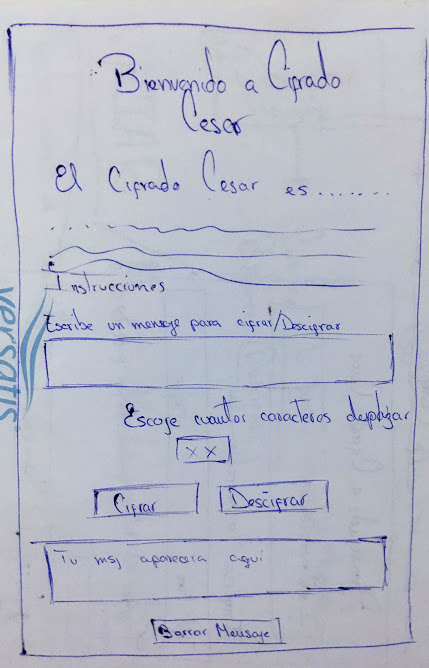 Bienvenido a Cifrado
Cesar
El Cifrado Cesar es.......
Instrucciones
Escribe un mensaje para cifrar/Descifrar
Escoje cuantos caracteres desplazar
XX
Cifrar
Descifrar
Tu msj aparecera aqui
Borrar Mensaje
versatis